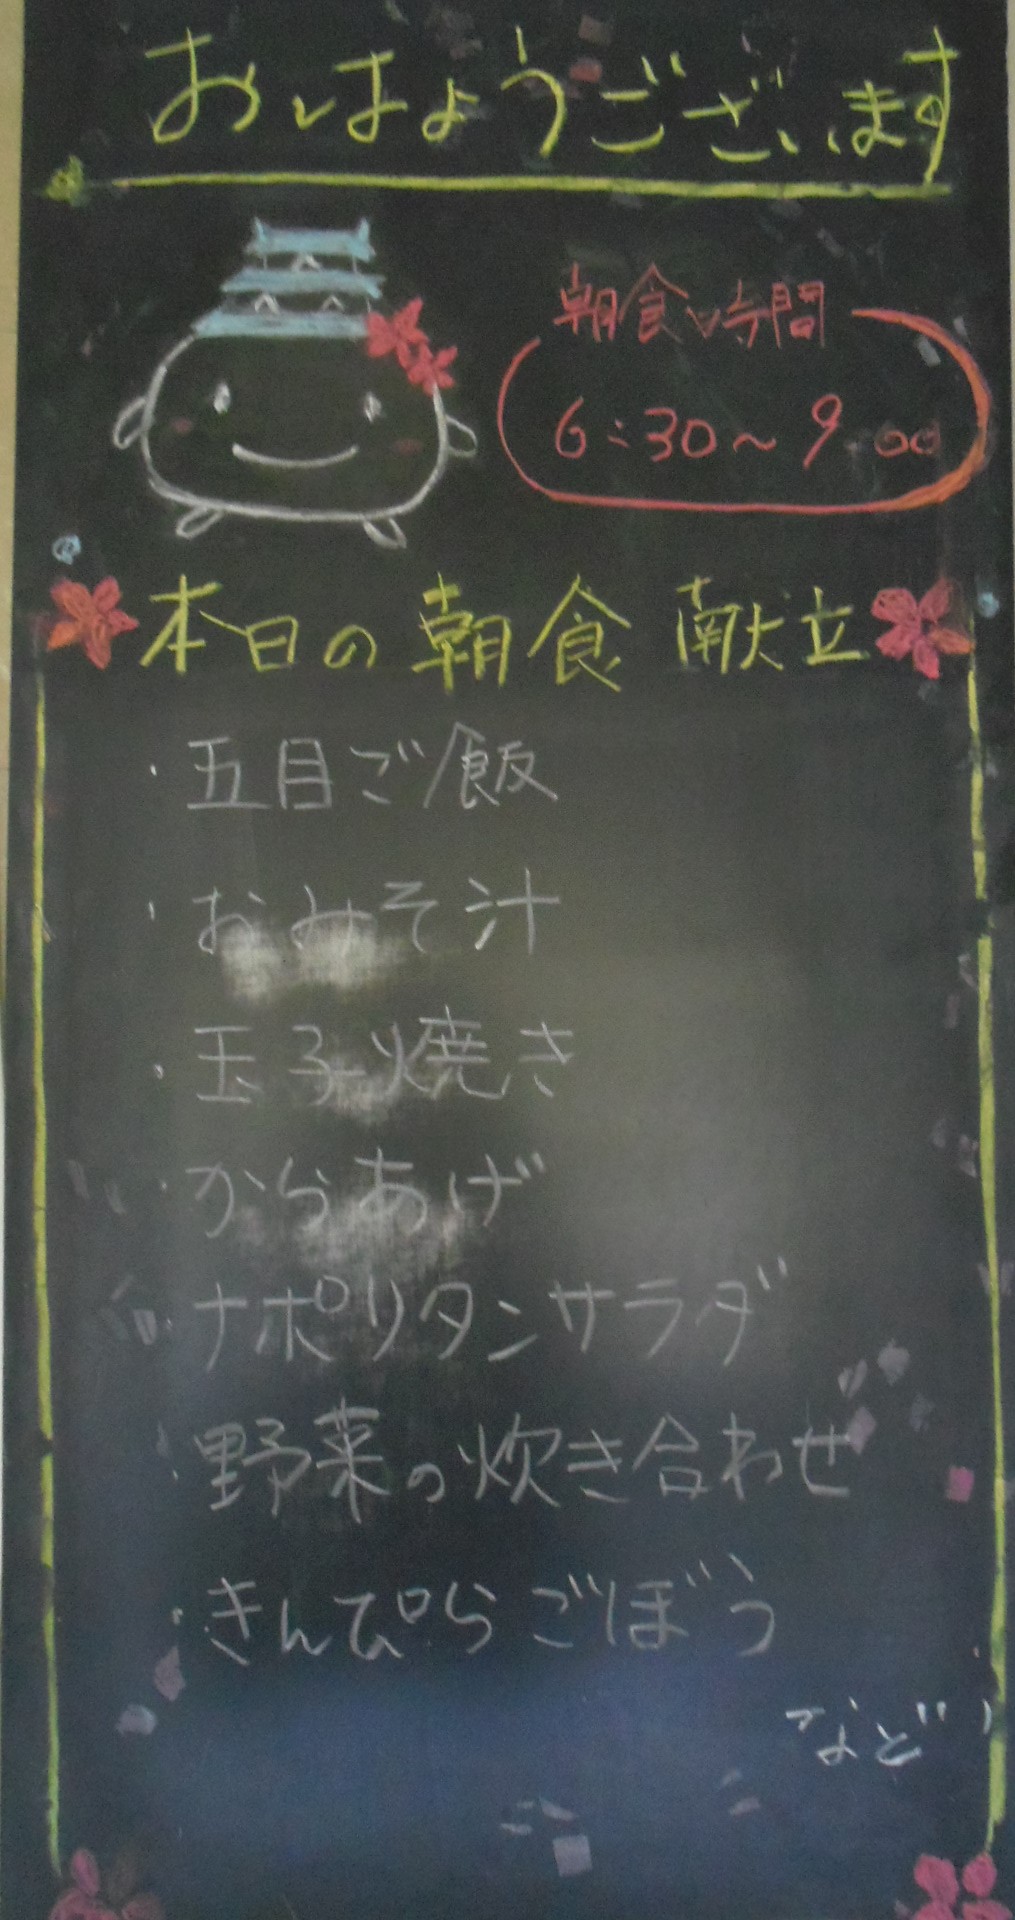 おはようございます
朝食時間
6:30～9 00
本日の朝食 献立
・五目ご飯
・おみそ汁
・玉子焼き
・からあげ
ナポリタンサラダ
・野菜の炊き合わせ
・きんぴらごぼう
など